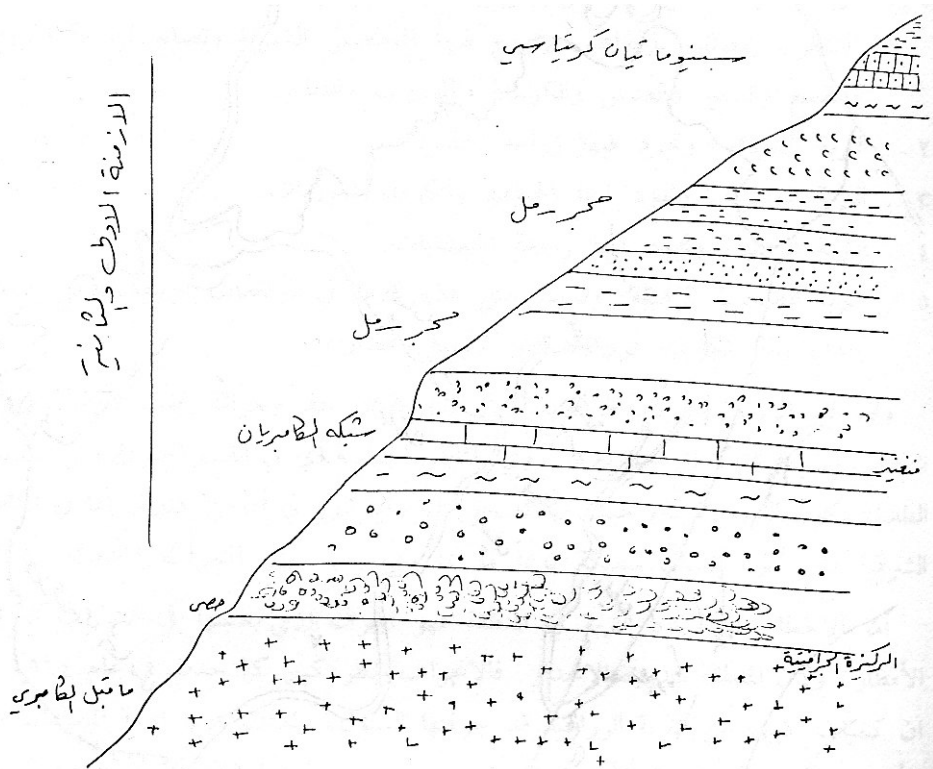 سينومانيان كريتاسي
الازمنة الاولى والثانية
حجر رمل
حجر رمل
شبكه الكامبريان
منغنيز
حصى
الركيزة الجرانيتية
ما قبل الكامبري